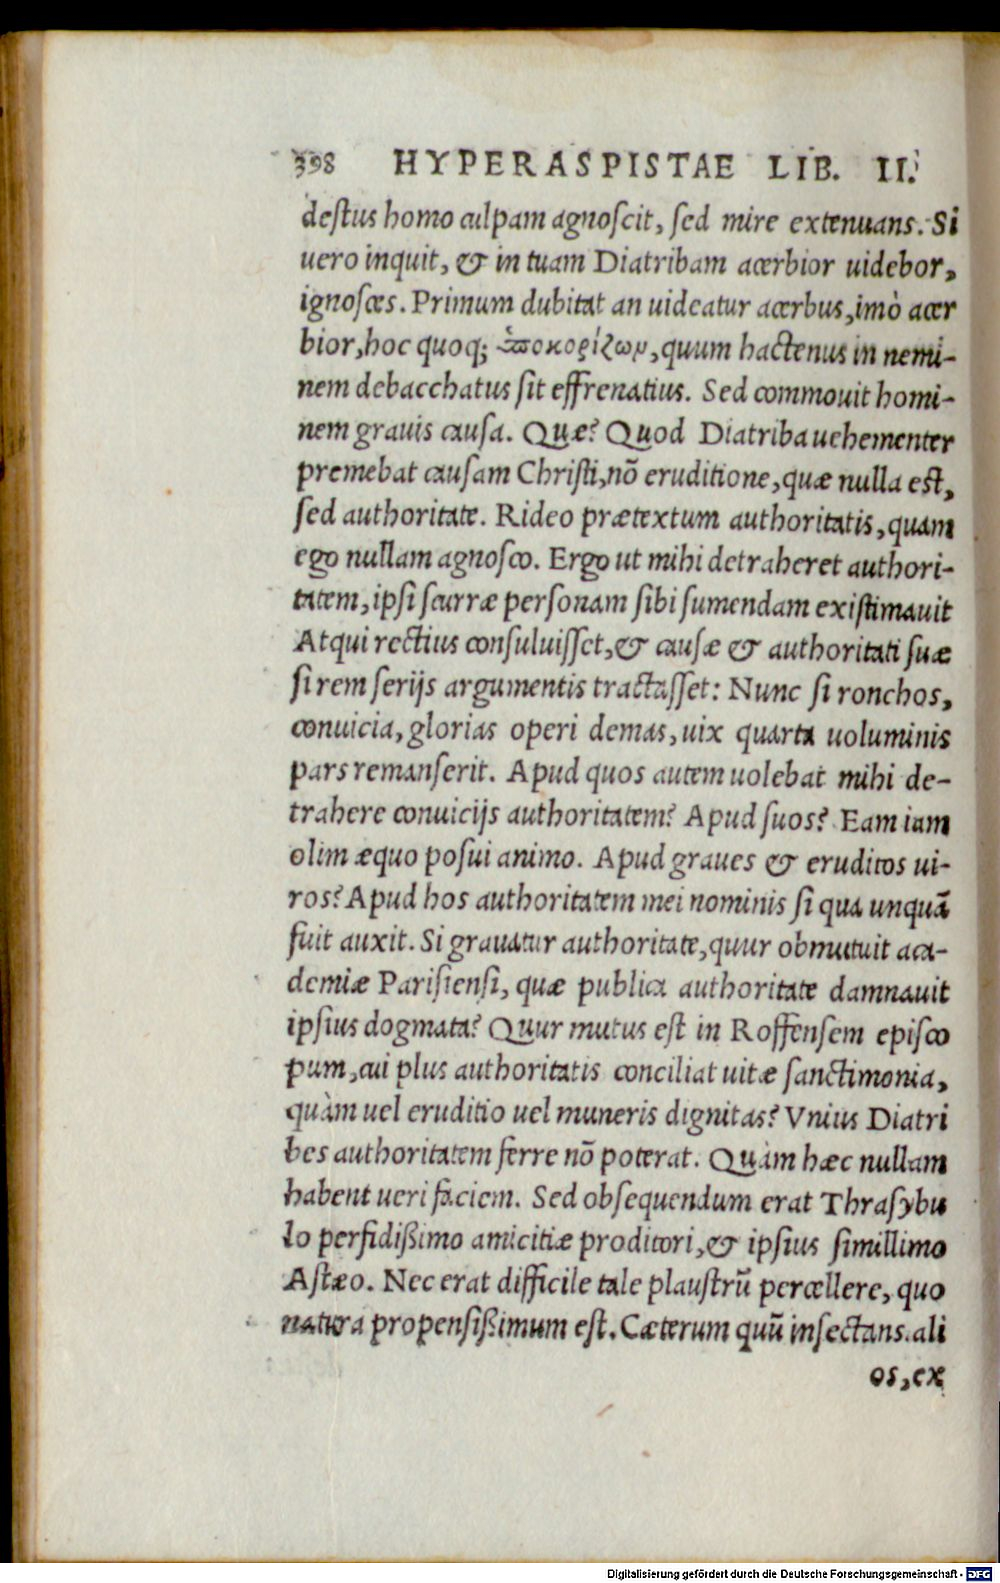 398 HYPERASPISTAE LIB. II.
destus homo culpam agnoscit, sed mire extenuans. Si
uero inquit, & in tuam Diatribam acerbior uidebor,
ignosces. Primum dubitat an uideatur acerbus, imò acer
bior, hoc quoq; ὑποκορίζων, quum hactenus in nemi-
nem debacchatus sit effrenatius. Sed commouit homi-
nem grauis causa. Quæ? Quod Diatriba uehementer
premebat causam Christi, nõ eruditione, quæ nulla est,
sed authoritate. Rideo prætextum authoritatis, quam
ego nullam agnosco. Ergo ut mihi detraheret authori-
tatem, ipsi scurræ personam sibi sumendam existimauit
Atqui rectius consuluisset, & causæ & authoritati suæ
si rem serijs argumentis tractasset: Nunc si ronchos,
conuicia, glorias operi demas, uix quarta uoluminis
pars remanserit. Apud quos autem uolebat mihi de-
trahere conuicijs authoritatem? Apud suos? Eam iam
olim æquo posui animo. Apud graues & eruditos ui-
ros? Apud hos authoritatem mei nominis si qua unquã
fuit auxit. Si grauatur authoritate, quur obmutuit aca-
demiæ Parisiensi, quæ publica authoritate damnauit
ipsius dogmata? Quur mutus est in Roffensem episco
pum, cui plus authoritatis conciliat uitæ sanctimonia,
quàm uel eruditio uel muneris dignitas? Vnius Diatri
bes authoritatem ferre nõ poterat. Quàm hæc nullam
habent ueri faciem. Sed obsequendum erat Thrasybu
lo perfidißimo amicitiæ proditori, & ipsius simillimo
Astæo. Nec erat difficile tale plaustrũ percellere, quo
natura propensißimum est. Cæterum quũ insectans ali
os, ex
Digitalisierung gefördert durch die Deutsche Forschungsgemeinschaft - DFG